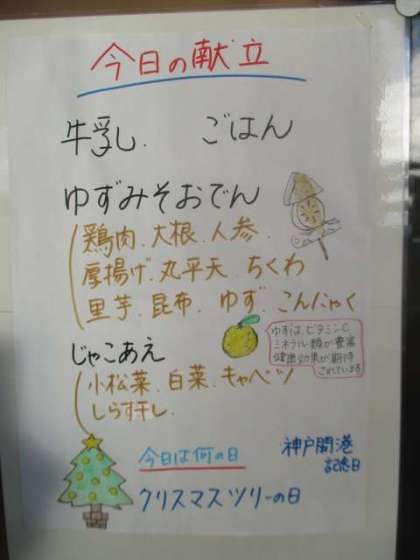 今日の献立
牛乳. ごはん
ゆずみそおでん
鶏肉.大根.人参.
厚揚げ.丸平天.ちくわ
里芋.昆布.ゆず.こんにゃく
ゆずは、ビタミンC、
ミネラル類が豊富
健康効果が期待
されている
じゃこあえ
小松菜.白菜.キャベツ
しらす干し.
今日は何の日
神戸開港
記念日
クリスマスツリーの日